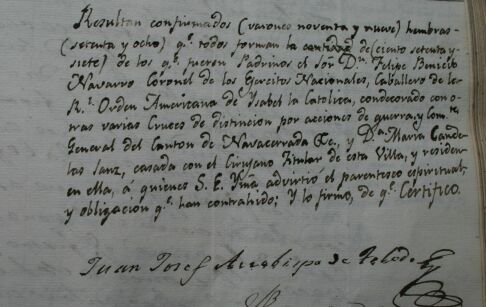 Resultan confirmados (varones noventa y nueve) hembras
(setenta y ocho) q.e todos forman la cantidad de (ciento setenta y
siete) de los q.e fueron Padrinos el Señ.r D.n Felipe Benicio
Navarro Coronel de los Egercitos Nacionales, Caballero de la
R.l Orden Americana de Ysabel la Catolica, condecorado con o-
tras varias Cruces de distincion por acciones de guerra, y Com.te
General del Canton de Navacerrada &c. y D.a Maria Cande-
las Sanz, casada con el Cirujano Titular de esta Villa, y residen-
en ella, á quienes S. E. Yma. advirtió el parentesco espiritual,
y obligacion q.e han contrahido; Y lo firmo, de q.e Certifico.
Juan Josef Arzobispo de Toledo